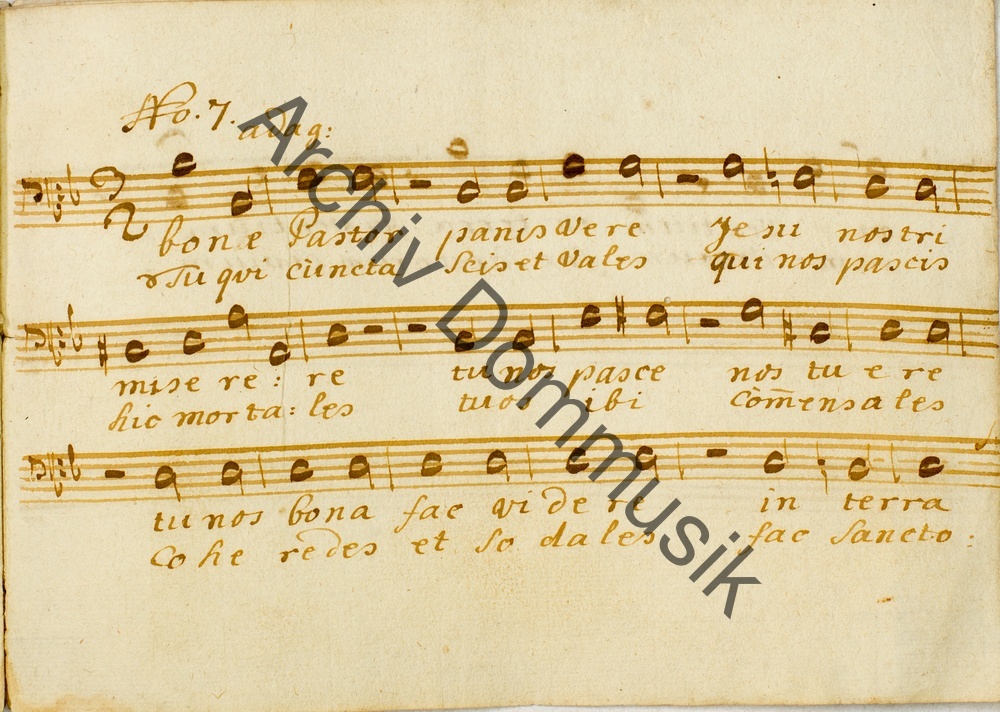 No. 7. adag:
bone Pastor panis vere Jesu nostri
Tu qui cuncta scis et vales qui nos pascis
mise re: re tu nos pasce nos tu e re
hic morta: les tuos ibi com̄ensa les
tu nos bona fac vi de re in terra
Co he redes et so dales fac sancto:
Archiv Dommusik